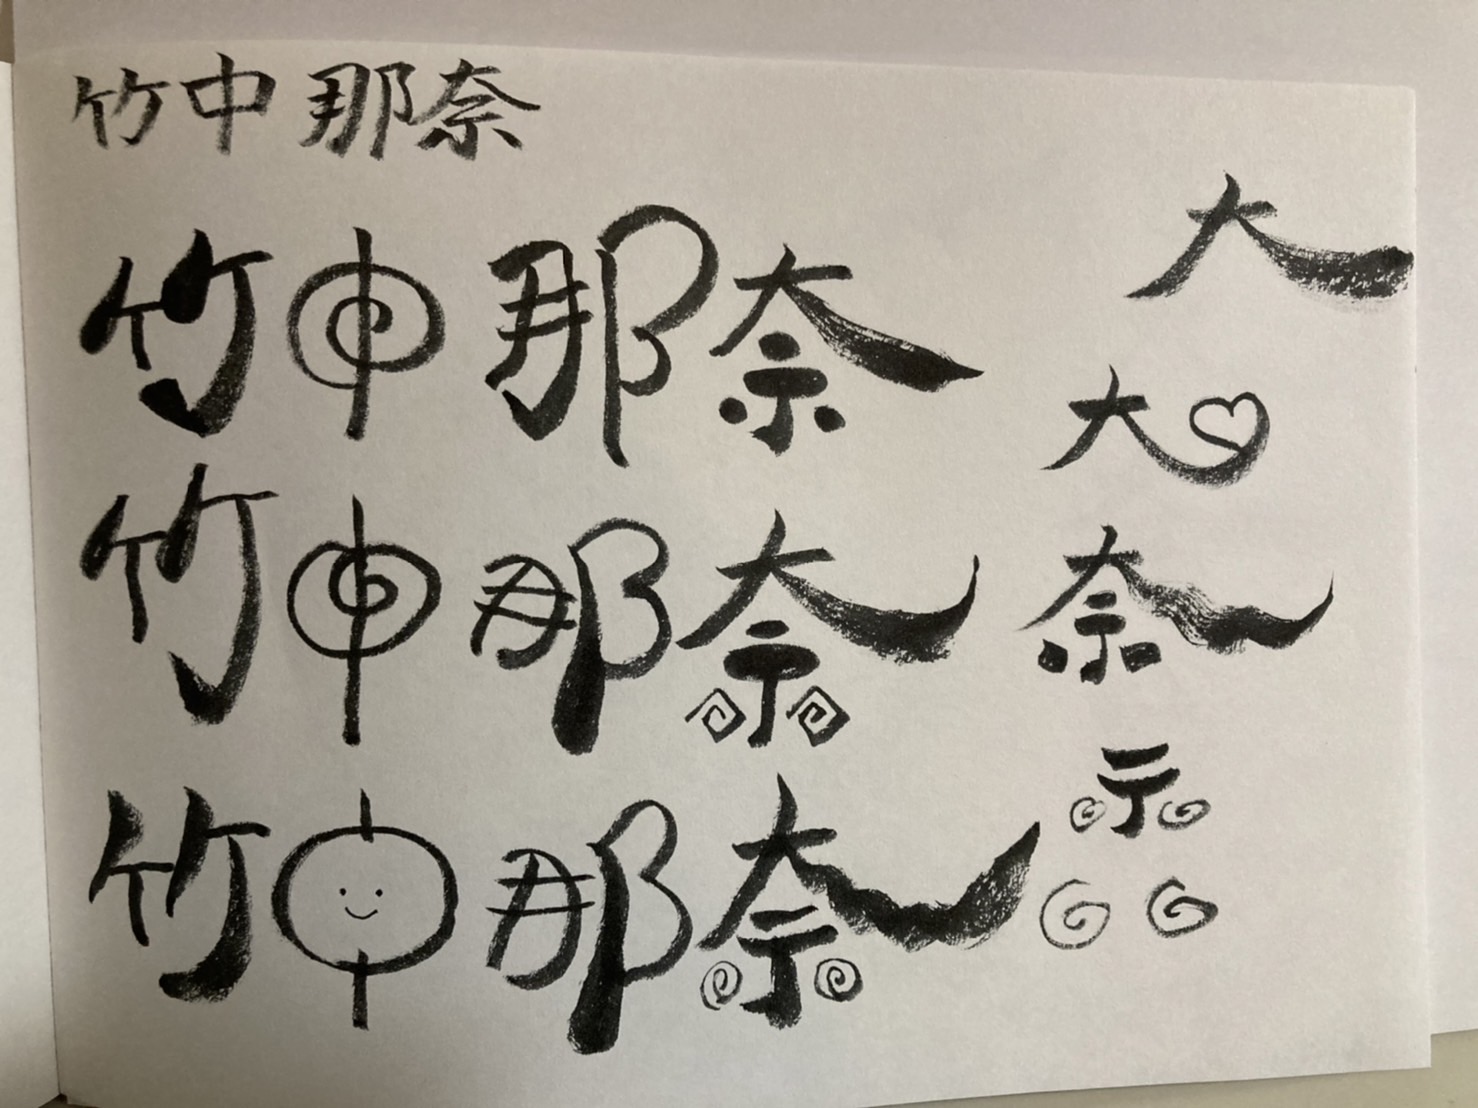 竹中 那奈
竹中 那奈
竹中 那奈
竹中 那奈
大
大
奈
示